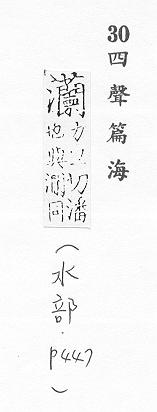 30 四聲篇海
切潘
也與同
（水部．p447）